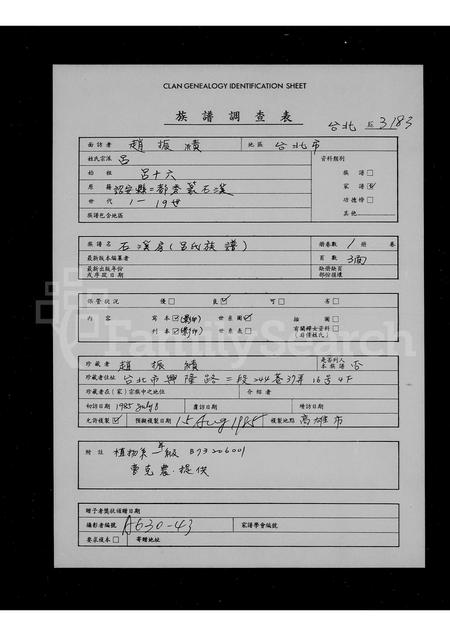 CLAN GENEALOGY IDENTIFICATION SHEET
族譜調查表
台北 區3183
面訪者 趙振績 地區 台北市
姓氏宗派 呂 資料類別
始祖 呂十六 族譜□
原籍 詔安縣二都秀篆石溪 家譜☑
世代 1—19世 功德榜□
族譜包含地區 其他
族譜名 石溪房(呂氏族譜) 冊卷數 1 冊 卷
最新版本編纂者 頁數 3面
最新出版年份 缺冊缺頁
或序跋日期 部份損壞
保管狀況 優□ 良☑ 可□ 劣□
內容 寫本☑(影印) 世系圖☑ 插圖□
刊本□(影印) 世系表□ 有關婦女資料□
(日僅姓氏)
FamilySearch
珍藏者 趙振績 是否列入本族譜 否
珍藏者住址 台北市興隆路二段244巷37弄16号4F
珍藏者在(家)宗族中之地位 介紹者
初訪日期 1985 July 8 複訪日期 續訪日期
允許複製☑ 預擬複製日期 15 Aug 1985 複製地點 高雄市
附註 植物系一年級 B73206001
曹克農提供
贈予者獎狀頒贈日期
攝影者編號 A630-43 家譜學會編號
要求複本□ 寄贈地址